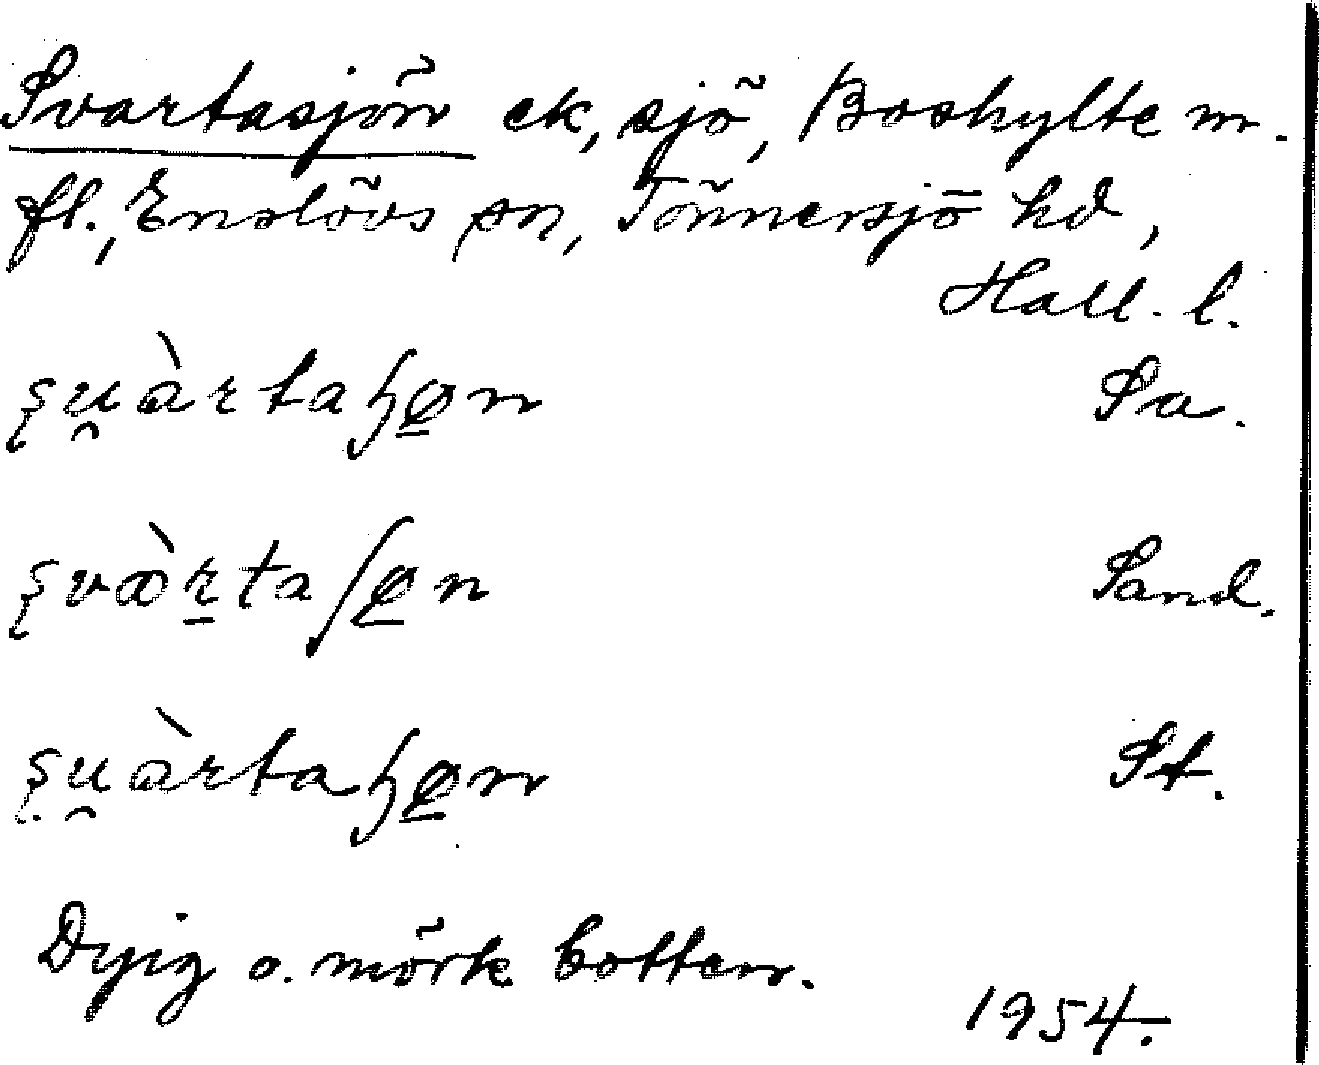 Svartasjön ek, sjö, Boskylte m.
fl., Enslövs sn, Tönnersjö hd,
Hall. l.
ʂu̯àrtaɧø̲n Sa.
ʂvæ̀r̲taʃø̲n Sand.
ʂu̯àrtaɧø̲n St.
Dyig o. mörk botten.
1954.